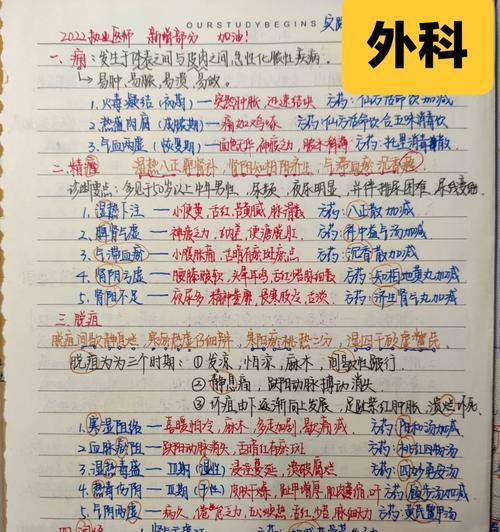 OURSTUDYBEGINS
外科
2022执业医师 新增部分 加油！
一、痈：发生于体表之间与皮肉之间，急性化脓性疾病。
↳易肿、易脓、易溃、易敛。
1.火毒凝结（初期）—突然肿胀，迅速结块 方药：仙方活命饮加减
2.热盛肉腐（成脓期）—痛如鸡啄 方药：仙方活命饮合五味消毒饮
3.气血两虚 方药：托里消毒散
二、精癃
诊断要点：多见于50岁以上中年男性，尿频，夜尿明显，并伴排尿困难，尿线变细
1.湿热下注—小便黄，舌红，苔黄腻，脉滑数 方药：八正散加减
2.脾肾气虚—神疲乏力，纳差，便溏脱肛 方药：补中益气汤加减
3.气滞血瘀—小腹胀痛，舌暗有瘀斑瘀点 方药：沉香散加减
4.肾阴亏虚—腰膝酸软，头晕耳鸣，舌红少苔脉细数 方药：知柏地黄丸加减
5.肾阳不足—夜尿多，精神萎靡，畏寒肢冷，舌淡 方药：济生肾气丸加减
三、脱疽
脱疽分为三个时期：①发凉，怕冷，麻木，间歇性跛行
②静息痛，趺阳动脉搏动消失
③坏疽由下逐渐向上发展，足趾紫红肿胀，溃烂坏死
1.寒湿阻络—喜暖怕冷，麻木，多走加剧，歇痛减 方药：阳和汤加减
2.血脉瘀阻—趺阳动脉消失，舌暗红有瘀斑 方药：桃红四物汤
3.湿热毒盛—浸淫蔓延，溃破腐烂 方药：四妙勇安汤
4.热毒伤阴—皮肤干燥，趾甲增厚，肌肉萎缩 方药：顾步汤加减
5.气阴两虚—病久，倦怠乏力，舌红少苔，脉细 方药：黄芪鳖甲汤